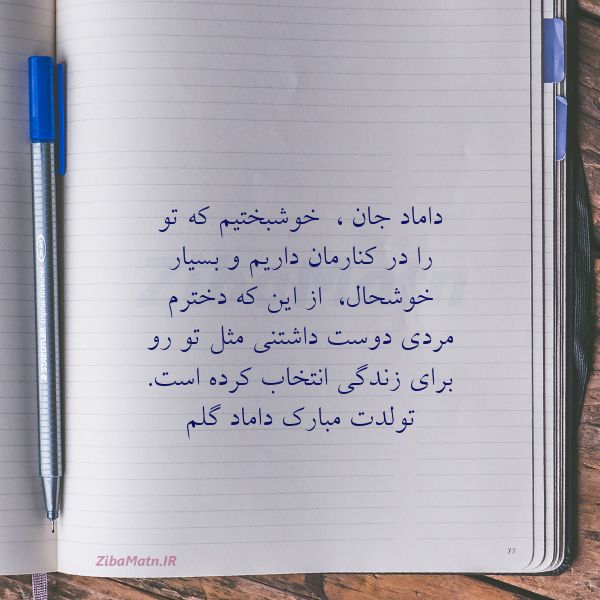 داماد جان ، خوشبختیم که تو
را در کنارمان داریم و بسیار
خوشحال، از این که دخترم
مردی دوست داشتنی مثل تو رو
برای زندگی انتخاب کرده است.
تولدت مبارک داماد گلم
77
ZibaMatn.IR